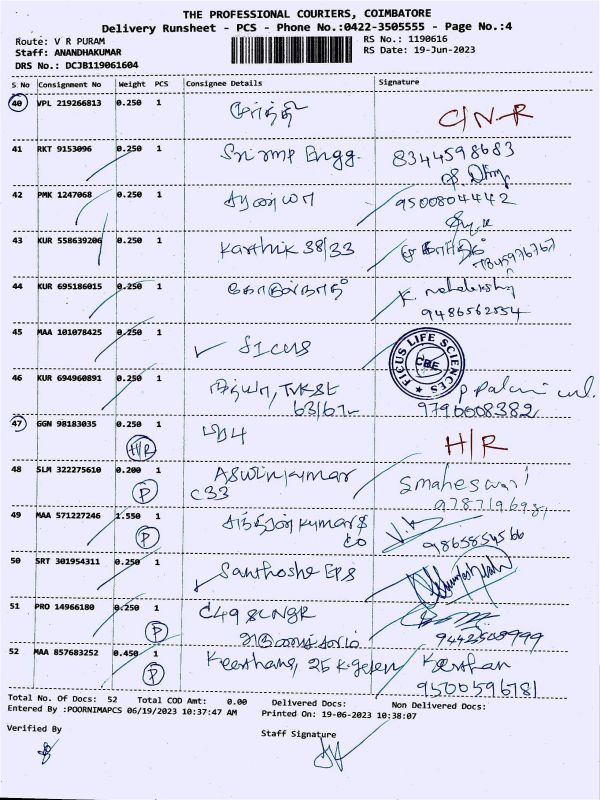 THE PROFESSIONAL COURIERS, COIMBATORE
Delivery Runsheet - PCS - Phone No.:0422-3505555 - Page No.:4
Route: V R PURAM
RS No.: 1190616
Staff: ANANDHAKUMAR
RS Date: 19-Jun-2023
DRS No.: DCJB119061604
S No Consignment No Weight PCS Consignee Details Signature
40 VPL 219266813 0.250 1 C/N-R
41 RKT 9153096 0.250 1 Engg. 8344598683
42 PMK 1247068 0.250 1 சரண்யா 9500804442
43 KUR 558639206 0.250 1 Karthik 38/33
44 KUR 695186015 0.250 1 கோகுல்நாத் K.
9486562554
45 MAA 101078425 0.250 1 FICUS FICUS LIFE SCIENCES CBE
46 KUR 694960891 0.250 1 TVKSt
63/67 9790008382
47 GGN 98183035 0.250 1 H/R H/R
48 SLM 322275610 0.200 1 Aswin kumar
C33 P
49 MAA 571227246 1.550 1 kumar &
Co P
50 SRT 301954311 0.250 1 Santhoshe EPS
51 PRO 14966180 0.250 1 C49
P 9442508999
52 MAA 857683252 0.450 1 Keerthana, 25 Keerthan
P 9500596181
Total No. Of Docs: 52 Total COD Amt: 0.00 Delivered Docs: Non Delivered Docs:
Entered By :POORNIMAPCS 06/19/2023 10:37:47 AM Printed On: 19-06-2023 10:38:07
Verified By Staff Signature